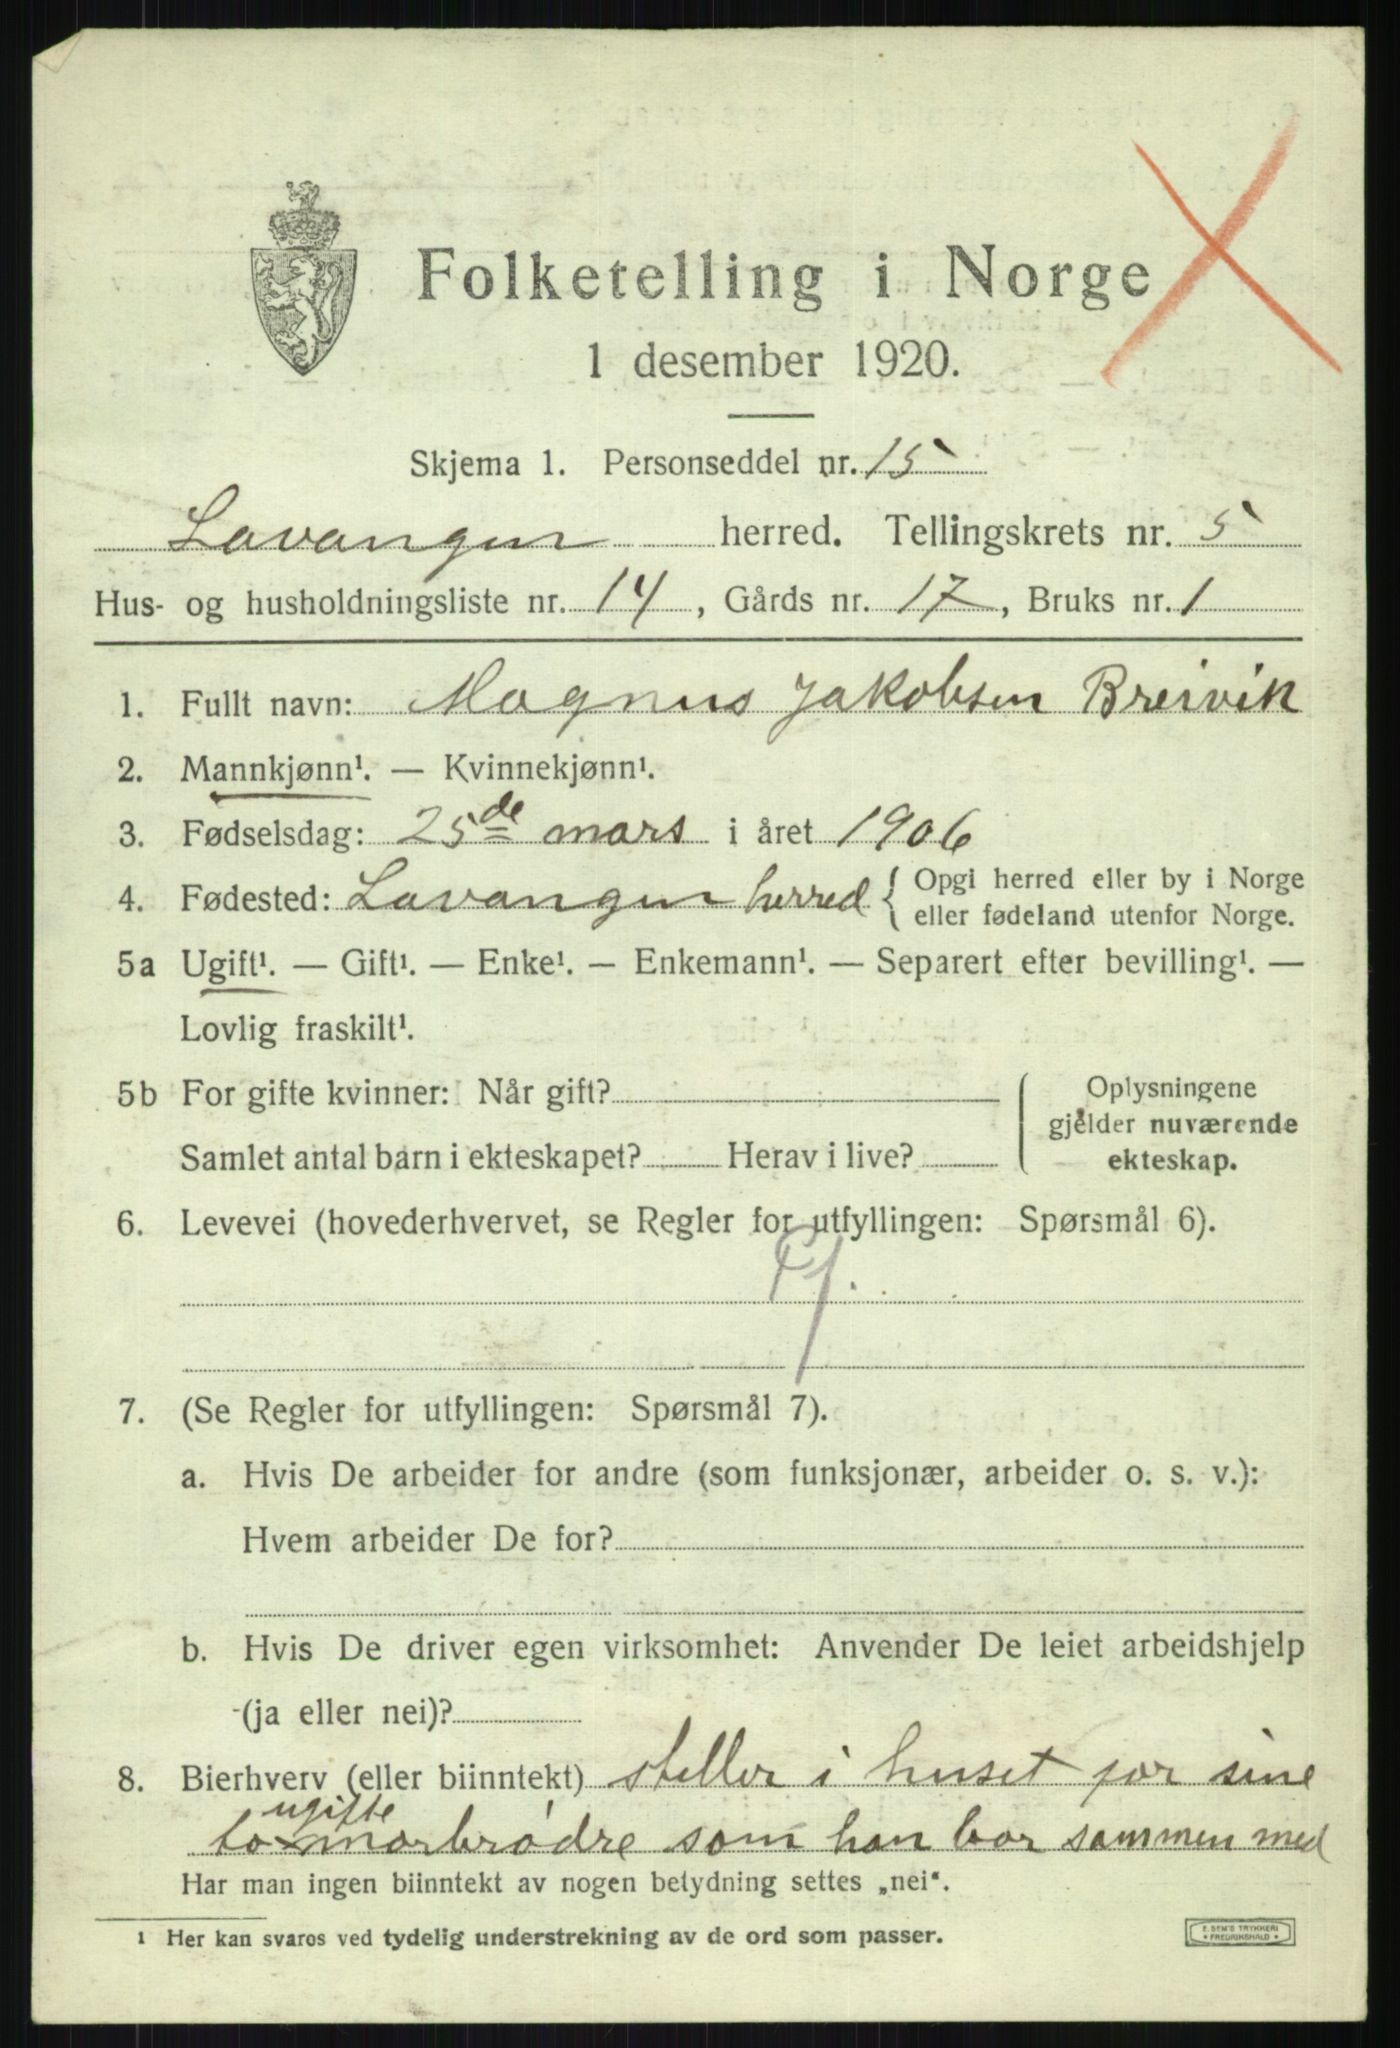 Folketelling i Norge
1 desember 1920.
Skjema 1. Personseddel nr. 15
Lavangen herred. Tellingskrets nr. 5
Hus- og husholdningsliste nr. 14, Gårds nr. 17, Bruks nr. 1
1. Fullt navn: Magnus Jakobsen Breivik
2. Mannkjønn¹. — Kvinnekjønn¹.
3. Fødselsdag: 25de mars i året 1906
4. Fødested: Lavangen herred { Opgi herred eller by i Norge
eller fødeland utenfor Norge.
5a Ugift¹. — Gift¹. — Enke¹. — Enkemann¹. — Separert efter bevilling¹. —
Lovlig fraskilt¹.
5b For gifte kvinner: Når gift?
Samlet antal barn i ekteskapet? Herav i live?
Oplysningene
gjelder nuværende
ekteskap.
6. Levevei (hovederhvervet, se Regler for utfyllingen: Spørsmål 6).
7. (Se Regler for utfyllingen: Spørsmål 7).
a. Hvis De arbeider for andre (som funksjonær, arbeider o. s. v.):
Hvem arbeider De for?
b. Hvis De driver egen virksomhet: Anvender De leiet arbeidshjelp
(ja eller nei)?
8. Bierhverv (eller biinntekt) steller i huset for sine
ugifte
to morbrødre som han bor sammen med
Har man ingen biinntekt av nogen betydning settes „nei".
¹ Her kan svaros ved tydelig understrekning av de ord som passer.
E. SEM'S TRYKKERI
FREDRIKSHALD